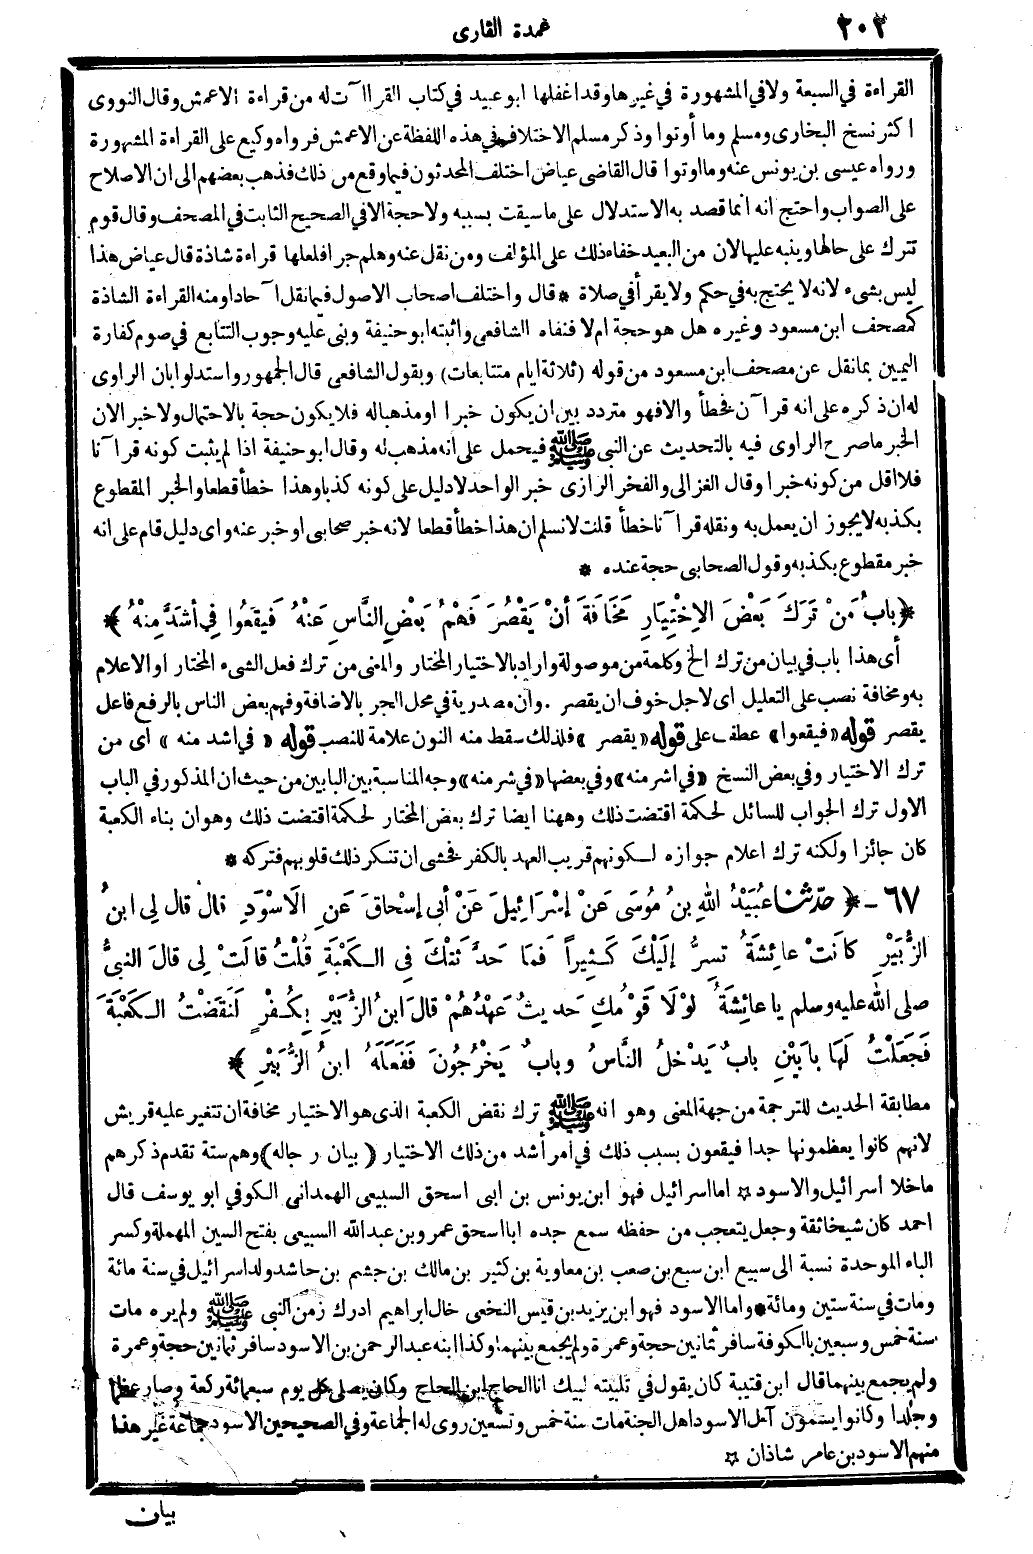 ٢٠٢
عمدة القارى
القراءة في السبعة ولا في المشهورة في غيرها وقد اغفلها ابو عبيد في كتاب القراآت له من قراءة الاعمش وقال النووى
اكثر نسخ البخارى ومسلم وما أوتوا وذكر مسلم الاختلاف في هذه اللفظة عن الاعمش فرواه وكيع على القراءة المشهورة
ورواه عيسى بن يونس عنه وما اوتوا قال القاضى عياض اختلف المحدثون فيما وقع من ذلك فذهب بعضهم الى ان الاصلاح
على الصواب واحتج انه انما قصد به الاستدلال على ما سيقت بسببه ولا حجة الا في الصحيح الثابت في المصحف وقال قوم
تترك على حالها وينبه عليها لان من البعيد خفاء ذلك على المؤلف ومن نقل عنه وهلم جرا فلعلها قراءة شاذة قال عياض هذا
ليس بشىء لانه لا يحتج به في حكم ولا يقرأ في صلاة * قال واختلف اصحاب الاصول فيما نقل آحادا ومنه القراءة الشاذة
كمصحف ابن مسعود وغيره هل هو حجة ام لا فنفاه الشافعى واثبته ابو حنيفة وبنى عليه وجوب التتابع في صوم كفارة
اليمين بما نقل عن مصحف ابن مسعود من قوله (ثلاثة ايام متتابعات) وبقول الشافعى قال الجمهور واستدلوا بان الراوى
له ان ذكره على انه قرآن فخطأ والا فهو متردد بين ان يكون خبرا او مذهبا له فلا يكون حجة بالاحتمال ولا خبر الان
الخبر ما صرح الراوى فيه بالتحديث عن النبى ﷺ فيحمل على انه مذهب له وقال ابو حنيفة اذا لم يثبت كونه قرآنا
فلا اقل من كونه خبرا وقال الغزالى والفخر الرازى خبر الواحد لا دليل على كونه كذبا وهذا خطأ قطعا والخبر المقطوع
بكذبه لا يجوز ان يعمل به ونقله قرآنا خطأ قلت لا نسلم ان هذا خطأ قطعا لانه خبر صحابى او خبر عنه واى دليل قام على انه
خبر مقطوع بكذبه وقول الصحابى حجة عنده *
﴿ بابُ مَنْ تَرَكَ بَعْضَ الاِخْتِيَارِ مَخَافَةَ أَنْ يَقْصُرَ فَهْمُ بَعْضِ النَّاسِ عَنْهُ فَيَقَعُوا فِي أَشَدَّ مِنْهُ ﴾
أى هذا باب في بيان من ترك الخ وكلمة من موصولة واراد بالاختيار المختار والمعنى من ترك فعل الشىء المختار او الاعلام
به ومخافة نصب على التعليل اى لاجل خوف ان يقصر . وان مصدرية في محل الجر بالاضافة وفهم بعض الناس بالرفع فاعل
يقصر قوله «فيقعوا» عطف على قوله «يقصر» فلذلك سقط منه النون علامة للنصب قوله « في اشد منه » اى من
ترك الاختيار وفي بعض النسخ «في اشر منه» وفي بعضها «في شر منه» وجه المناسبة بين البابين من حيث ان المذكور في الباب
الاول ترك الجواب للسائل لحكمة اقتضت ذلك وههنا ايضا ترك بعض المختار لحكمة اقتضت ذلك وهو ان بناء الكعبة
كان جائزا ولكنه ترك اعلام جوازه لكونهم قريب العهد بالكفر فخشى ان تنكر ذلك قلوبهم فتركه *
٦٧ - ﴿ حدّثنا عُبَيْدُ اللهِ بنُ مُوسَى عَنْ إِسْرَائِيلَ عَنْ أبى إسْحَاقَ عَنِ الاَسْوَدِ قالَ قالَ لِي ابنُ
الزُّبَيْرِ كانَتْ عائِشَةُ تُسِرُّ إِلَيْكَ كَثِيراً فَمَا حَدَّثَتْكَ فِي الكَعْبَةِ قُلْتُ قالَتْ لِى قالَ النبىُّ
صلى الله عليه وسلم يا عائِشَةُ لَوْلَا قَوْمُكِ حَدِيثٌ عَهْدُهُمْ قالَ ابنُ الزُّبَيْرِ بِكُفْرٍ لَنَقَضْتُ الكَعْبَةَ
فَجَعَلْتُ لَهَا بابَيْنِ بابٌ يَدْخلُ النَّاسُ وبابٌ يَخْرُجُونَ فَفَعَلَهُ ابنُ الزُّبَيْرِ ﴾
مطابقة الحديث للترجمة من جهة المعنى وهو انه ﷺ ترك نقض الكعبة الذى هو الاختيار مخافة ان تتغير عليه قريش
لانهم كانوا يعظمونها جدا فيقعون بسبب ذلك في امر أشد من ذلك الاختيار ( بيان رجاله) وهم ستة تقدم ذكرهم
ما خلا اسرائيل والاسود ☆ اما اسرائيل فهو ابن يونس بن ابى اسحق السبيعى الهمدانى الكوفي ابو يوسف قال
احمد كان شيخا ثقة وجعل يتعجب من حفظه سمع جده ابا اسحق عمرو بن عبد الله السبيعى بفتح السين المهملة وكسر
الباء الموحدة نسبة الى سبيع ابن سبع بن صعب بن معاوية بن كثير بن مالك بن جشم بن حاشد ولد اسرائيل في سنة مائة
ومات في سنة ستين ومائة * واما الاسود فهو ابن يزيد بن قيس النخعى خال ابراهيم ادرك زمن النبى ﷺ ولم يره مات
سنة خمس وسبعين بالكوفة سافر ثمانين حجة وعمرة ولم يجمع بينهما وكذا ابنه عبد الرحمن بن الاسود سافر ثمانين حجة وعمرة
ولم يجمع بينهما قال ابن قتيبة كان يقول في تلبيته لبيك انا الحاج ابن الحاج وكان يصلى كل يوم سبعمائة ركعة وصار عظما
وجلدا وكانوا يسمون آل الاسود اهل الجنة مات سنة خمس وتسعين روى له الجماعة وفي الصحيحين الاسود جماعة غير هذا
منهم الاسود بن عامر شاذان ☆
بيان